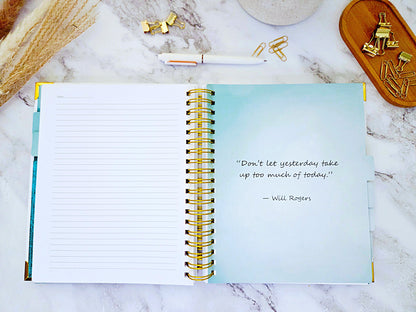 “Don't let yesterday take
up too much of today.”
— Will Rogers